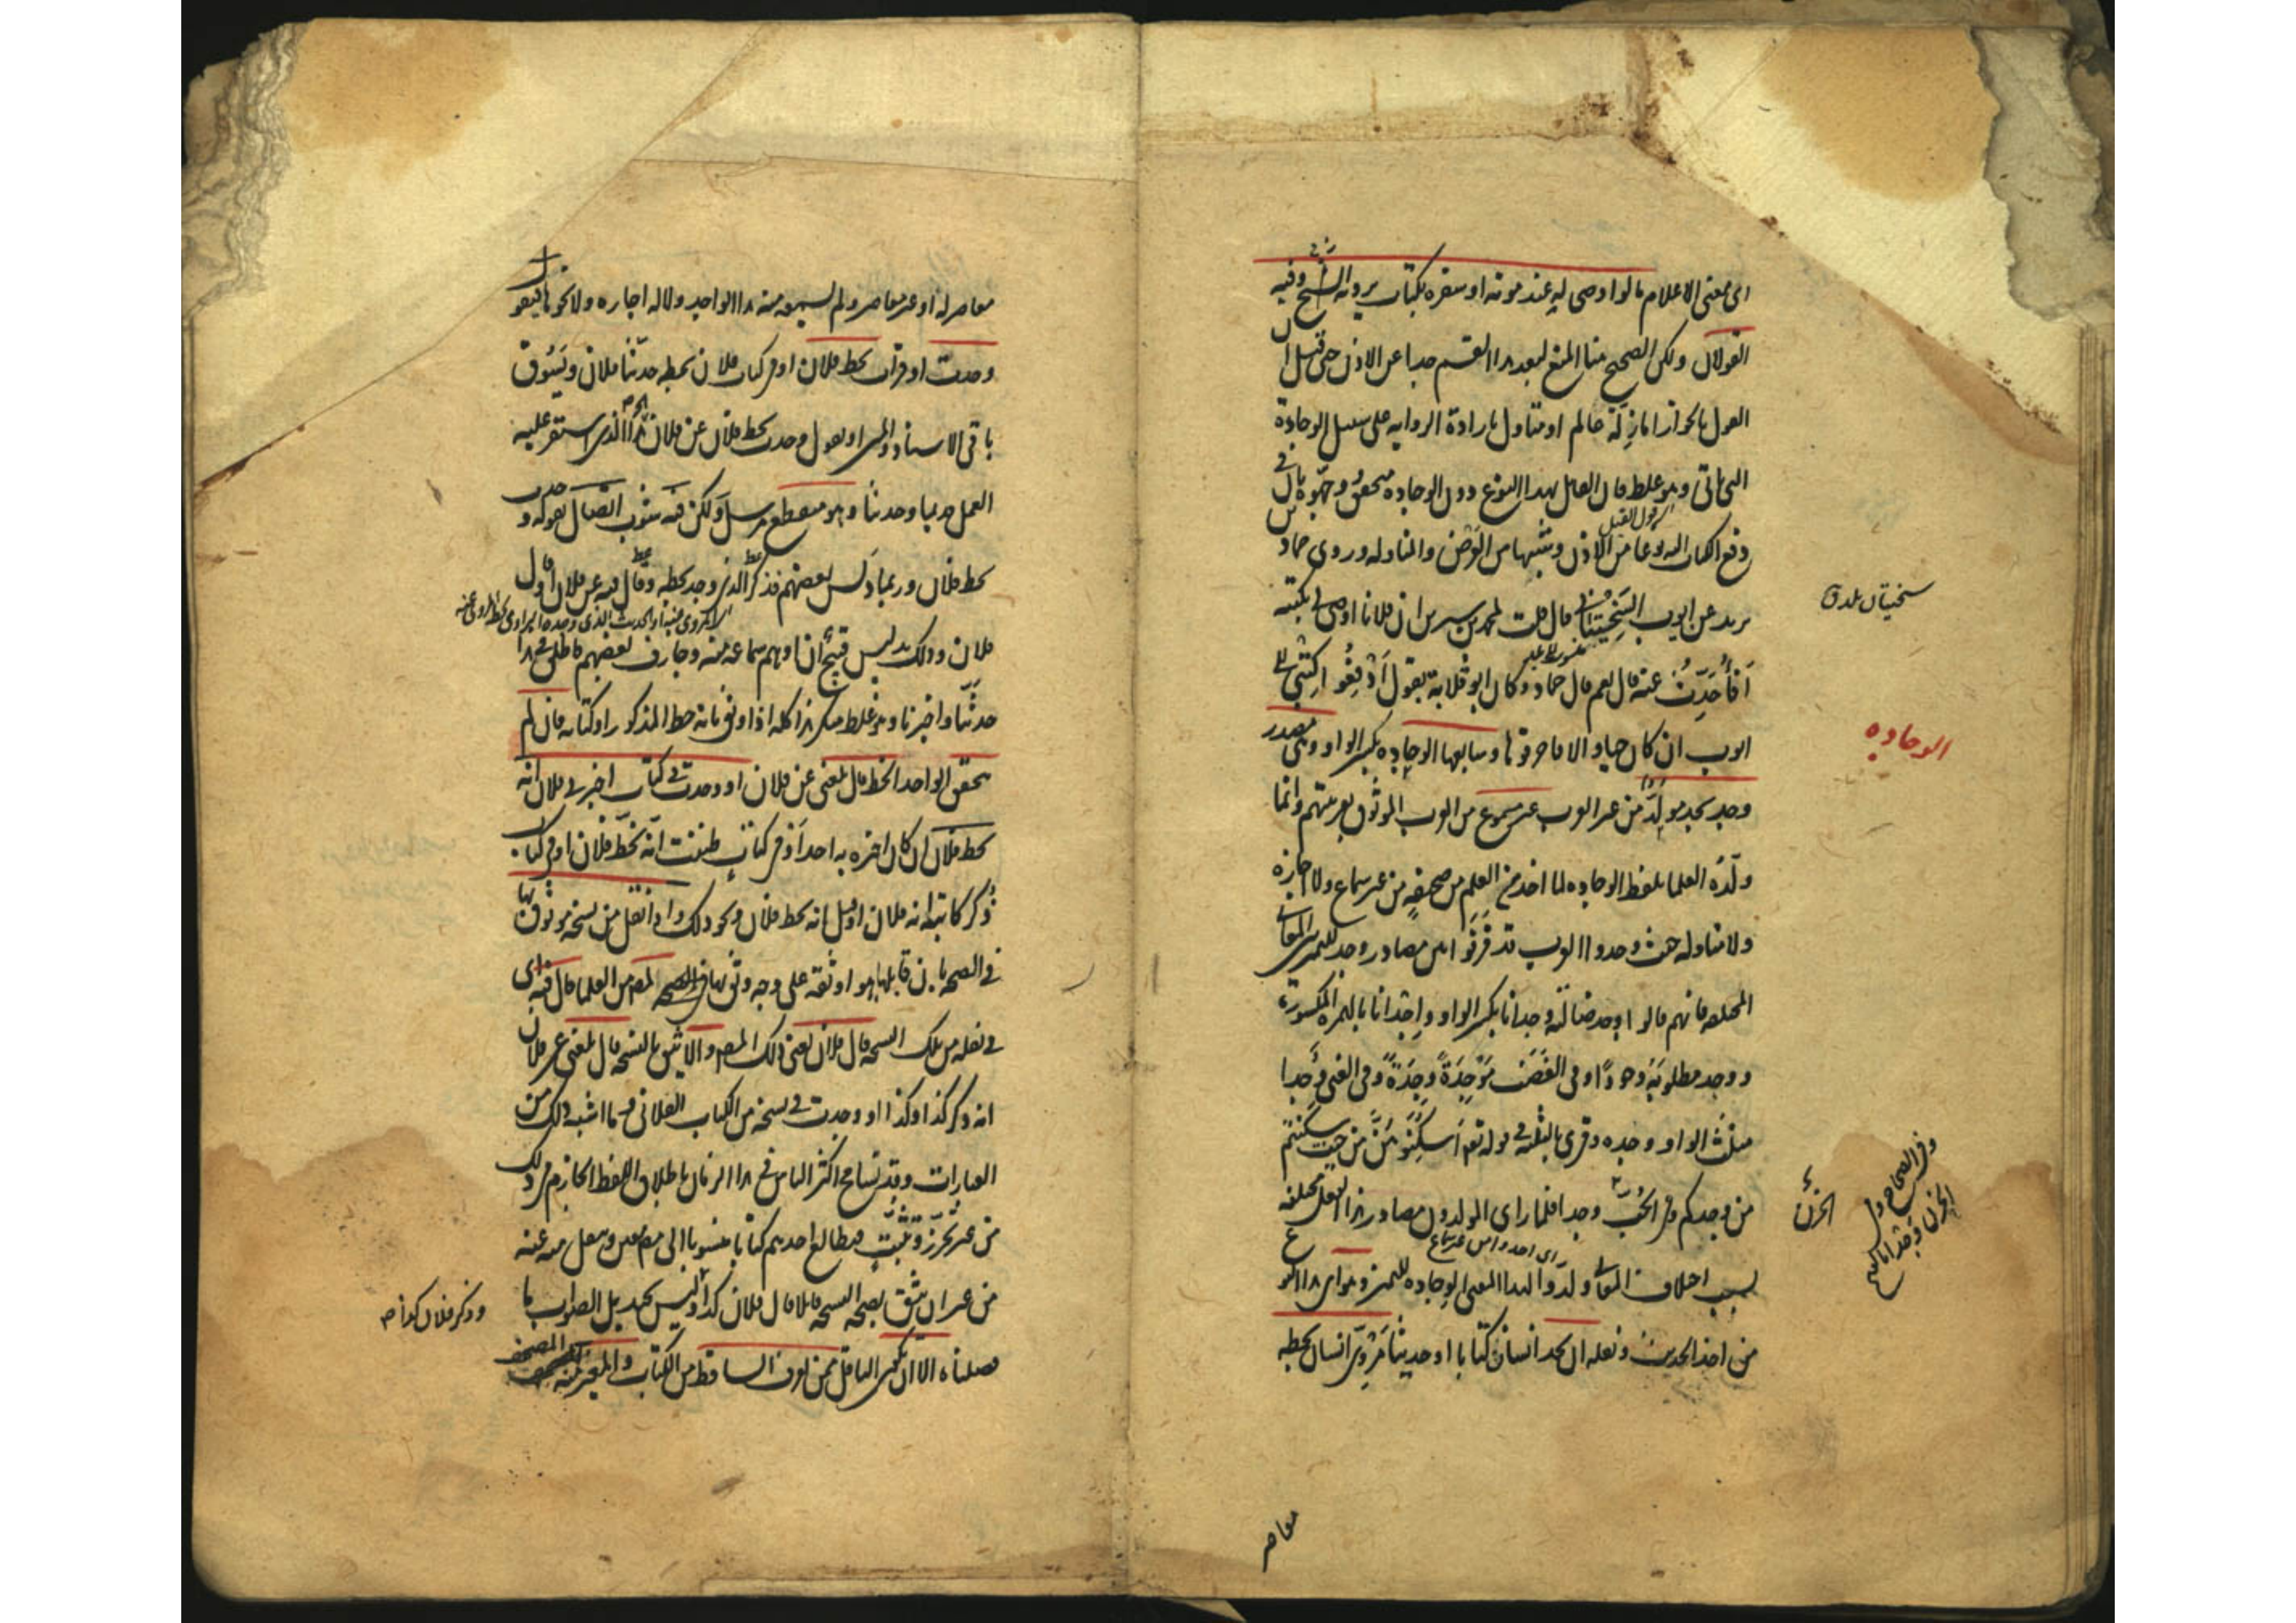 اى معنى الاعلام قالوا وصى له عند موته او سفره بكتاب يرويه الشيخ وفيه
القولان ولكن الصحيح هنا المنع لبعد هذا القسم جدا عن الاذن حتى قيل ان
القول بالجواز اما زلة عالم او متاول بارادة الرواية على سبيل الوجادة
وهو غلط فان القائل بهذا النوع دون الوجادة
دفع الكتاب اليه نوعا من الاذن وشبها من العرض والمناولة وروى حماد بن
زيد عن ايوب السختيانى قال قلت لمحمد بن سيرين ان فلانا اوصى لى بكتبه
أفأحدث عنه قال نعم قال حماد وكان ابو قلابة يقول ادفعوا كتبى الى
ايوب ان كان حيا والا فاحرقوها وسابعها الوجادة بكسر الواو وهى مصدر
وجد يجد مولد من غير العرب غير مسموع من العرب الموثوق بعربيتهم وانما
ولده العلما بلفظ الوجادة لما اخذ من العلم من صحيفة من غير سماع ولا اجازة
ولا مناولة حيث وجدوا العرب قد فرقوا بين مصادر وجد للتمييز بين المعانى
المختلفة فانهم قالوا وجد ضالته وجدانا بكسر الواو وإجدانا بالهمزة المكسورة
ووجد مطلوبه وجودًا وفى الغضب موجدة وجدة وفى الغنى وجدا
مثلث الواو وجدة وقرى بالثلثة فى قوله تعم اسكنوهن من حيث سكنتم
من وجدكم وفى الحب وجدا فلما راى المولدون مصادر هذا الفعل مختلفة
بسبب اختلاف المعانى ولدوا لهذا المعنى الوجادة للتمييز وهو اى هذا النوع
من اخذ الحديث ونقله ان يجد انسان كتابا او حديثا مروى انسان بخطه
سختيان بلدة
الوجادة
الحزن
وفى الصحاح
معاصر
معاصر له او غير معاصر ولم يسمعه منه هذا الواجد ولا له اجازة ولا نحوها فيقول
وجدت او قرات بخط فلان او فى كتاب فلان بخطه حدثنا فلان ويسوق
باقى الاسناد والمتن او يقول وجدت بخط فلان عن فلان هذا الذى استقر عليه
العمل قديما وحديثا وهو منقطع مرسل ولكن فيه شوب اتصال بقوله وجدت
بخط فلان وربما دلس بعضهم فذكر الذى وجد بخطه وقال فيه عن فلان او قال
فلان وذلك تدليس قبيح ان اوهم سماعه منه وجازف بعضهم فاطلق فى هذا
حدثنا واخبرنا وهو غلط منكر هذا كله اذا وثق بانه خط المذكور او كتابه فان لم
يتحقق الواجد الخط قال بلغنى عن فلان او وجدت فى كتاب اخبرنى فلان انه
بخط فلان ان كان اخبره به احد او فى كتاب ظننت انه بخط فلان او فى كتاب
ذكر كاتبه انه فلان او قيل انه بخط فلان ونحو ذلك واذا نقل من نسخة موثوق بها
فى الصحة بان قابلها هو او ثقة على وجه وثق بها فى الصحة لمصنف من العلما قال فيه اى
فى نقله من تلك النسخة قال فلان يعنى ذلك المصنف والا يثق بالنسخة قال بلغنى عن فلان
انه ذكر كذا وكذا او وجدت فى نسخة من الكتاب الفلانى وما اشبه ذلك من
العبارات وقد تسامح اكثر الناس فى هذا الزمان باطلاق اللفظ الجازم فى ذلك
من غير تحرز وتثبت فيطالع احدهم كتابا منسوبا الى مصنف معين وينقل منه عنه
من غير ان يثق بصحة النسخة قائلا قال فلان كذا وليس بجيد بل الصواب ما
فصلناه الا ان يكون الناقل ممن يعرف الساقط من الكتاب والمغير منه المصحف
وذكر فلان كذا صح